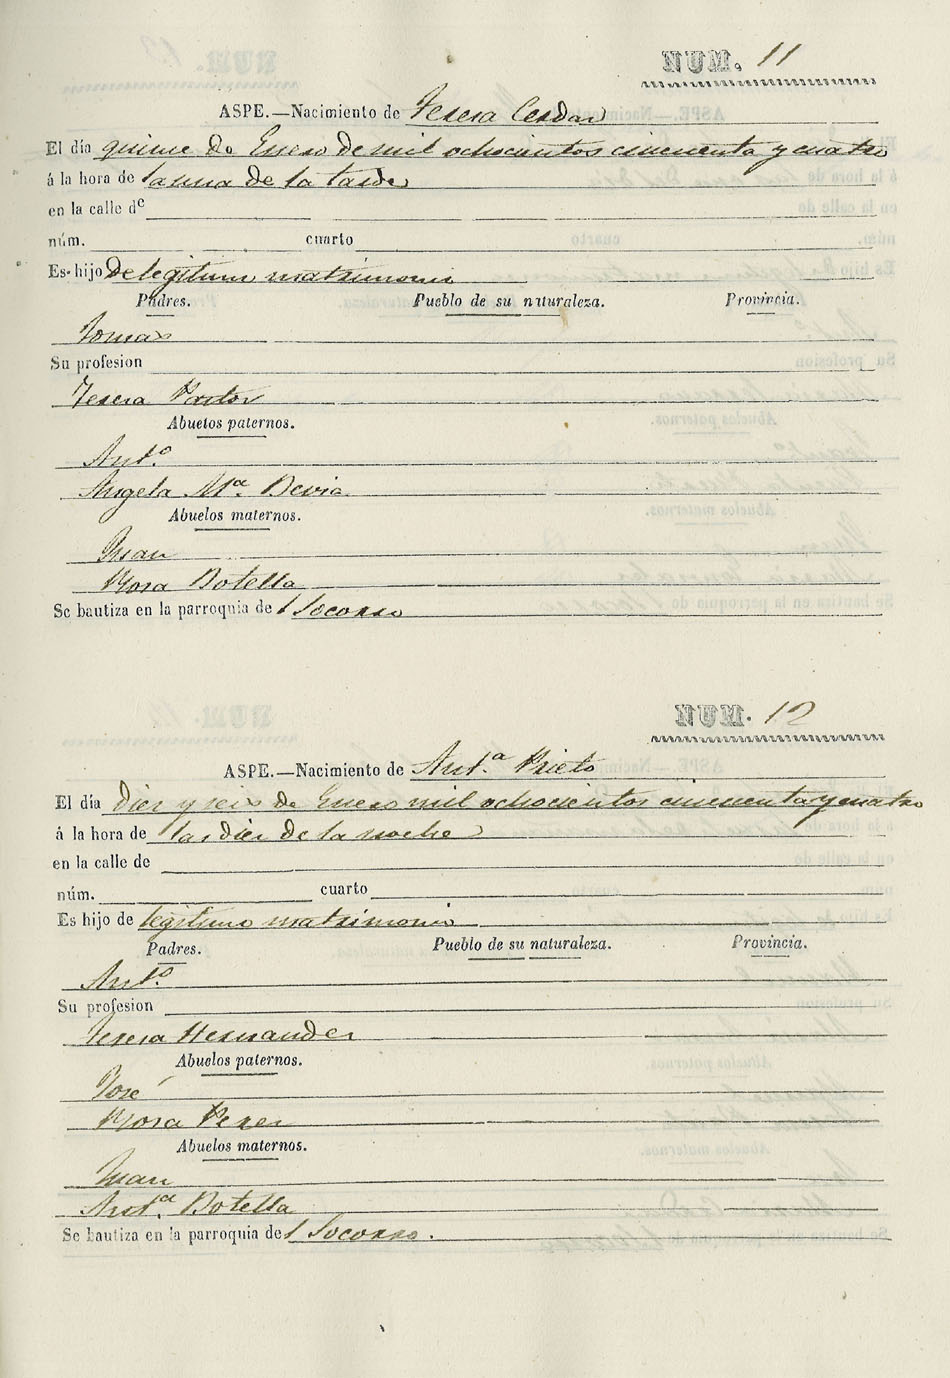 NUM. 11
ASPE.—Nacimiento de Teresa Cerdan
El día quince de Enero de mil ochocientos cincuenta y cuatro
á la hora de la una de la tarde
en la calle de
núm. cuarto
Es hijo de legitimo matrimonio
Padres. Pueblo de su naturaleza. Provincia.
Tomas
Su profesion
Teresa Pastor
Abuelos paternos.
Ant.º
Angela M.ª Devia
Abuelos maternos.
Juan
Rosa Botella
Se bautiza en la parroquia del Socorro
NUM. 12
ASPE.—Nacimiento de Ant.ª Prieto
El día diez y seis de Enero mil ochocientos cincuenta y cuatro
á la hora de las diez de la noche
en la calle de
núm. cuarto
Es hijo de legitimo matrimonio
Padres. Pueblo de su naturaleza. Provincia.
Ant.º
Su profesion
Teresa Hernandez
Abuelos paternos.
José
Rosa Perez
Abuelos maternos.
Juan
Ant.ª Botella
Se bautiza en la parroquia del Socorro.